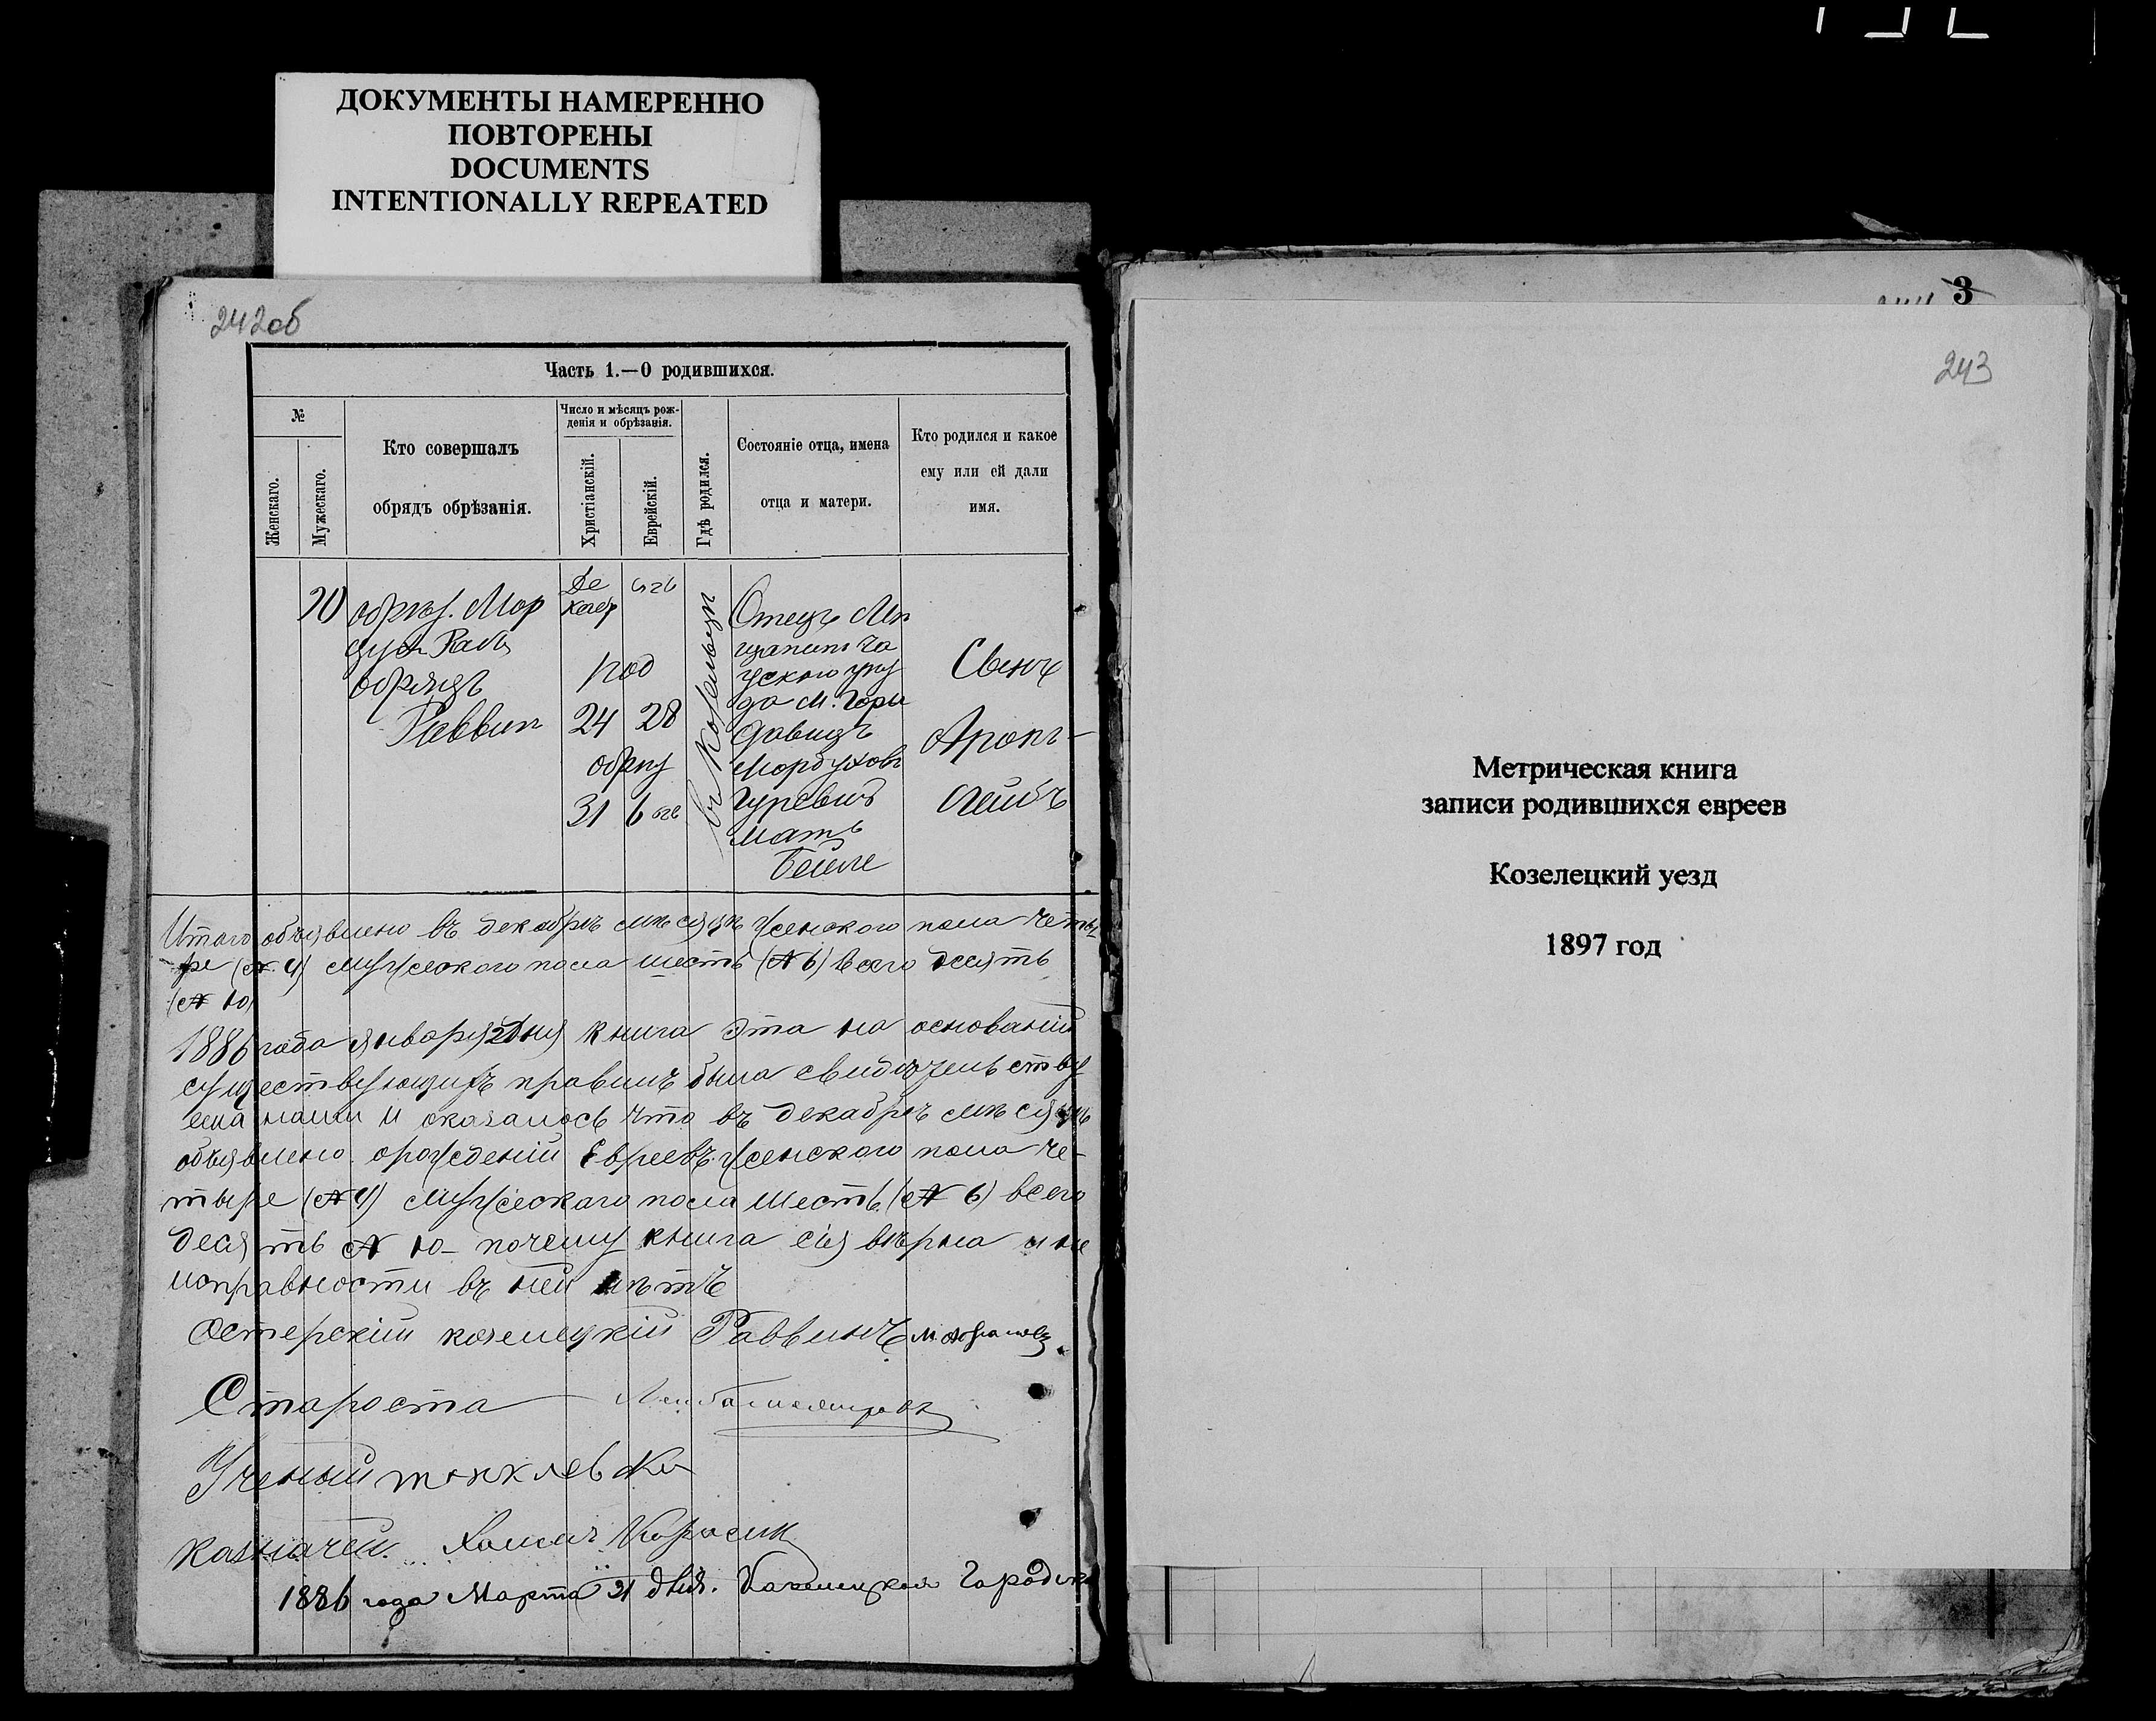 ДОКУМЕНТЫ НАМЕРЕННО
ПОВТОРЕНЫ
DOCUMENTS
INTENTIONALLY REPEATED
242об
Часть 1.—О родившихся.
№
Женскаго.
Мужескаго.
Кто совершалъ
обрядъ обрѣзанія.
Число и мѣсяцъ рож-
денія и обрѣзанія.
Христіанскій.
Еврейскій.
Гдѣ родился.
Состояніе отца, имена
отца и матери.
Кто родился и какое
ему или ей дали
имя.
обрѣз. Мор
обрядъ
Раввин
Де
кабр
род
24 28
обрѣз
31 6
въ Козельцѣ
Отецъ Мѣ
щанинъ
да м. Горы
Давидъ
Мордухов
Гуревич
мать
Бейле
Сынъ
Аронъ-
Лейбъ
Итого объявлено въ декабрѣ мѣсяцѣ женского пола четы
ре (№ 4) мужеского пола шесть (№ 6) всего десять
(№ 10)
1886 года января дня книга эта на основаніи
существующихъ правилъ была свидѣтельству
ема нами и оказалось что въ декабрѣ мѣсяцѣ
объявлено о рожденіи Евреевъ женского пола че-
тыре (№ 4) мужеского пола шесть (№ 6) всего
десять № 10- почему книга сія вѣрна и не
исправности въ ней нѣтъ
Остерскій козелецкій Раввинъ
Староста
Ученый
казначей. Карасик
1886 года Марта 21 дня. Козелецкая Городск
3
243
Метрическая книга
записи родившихся евреев
Козелецкий уезд
1897 год